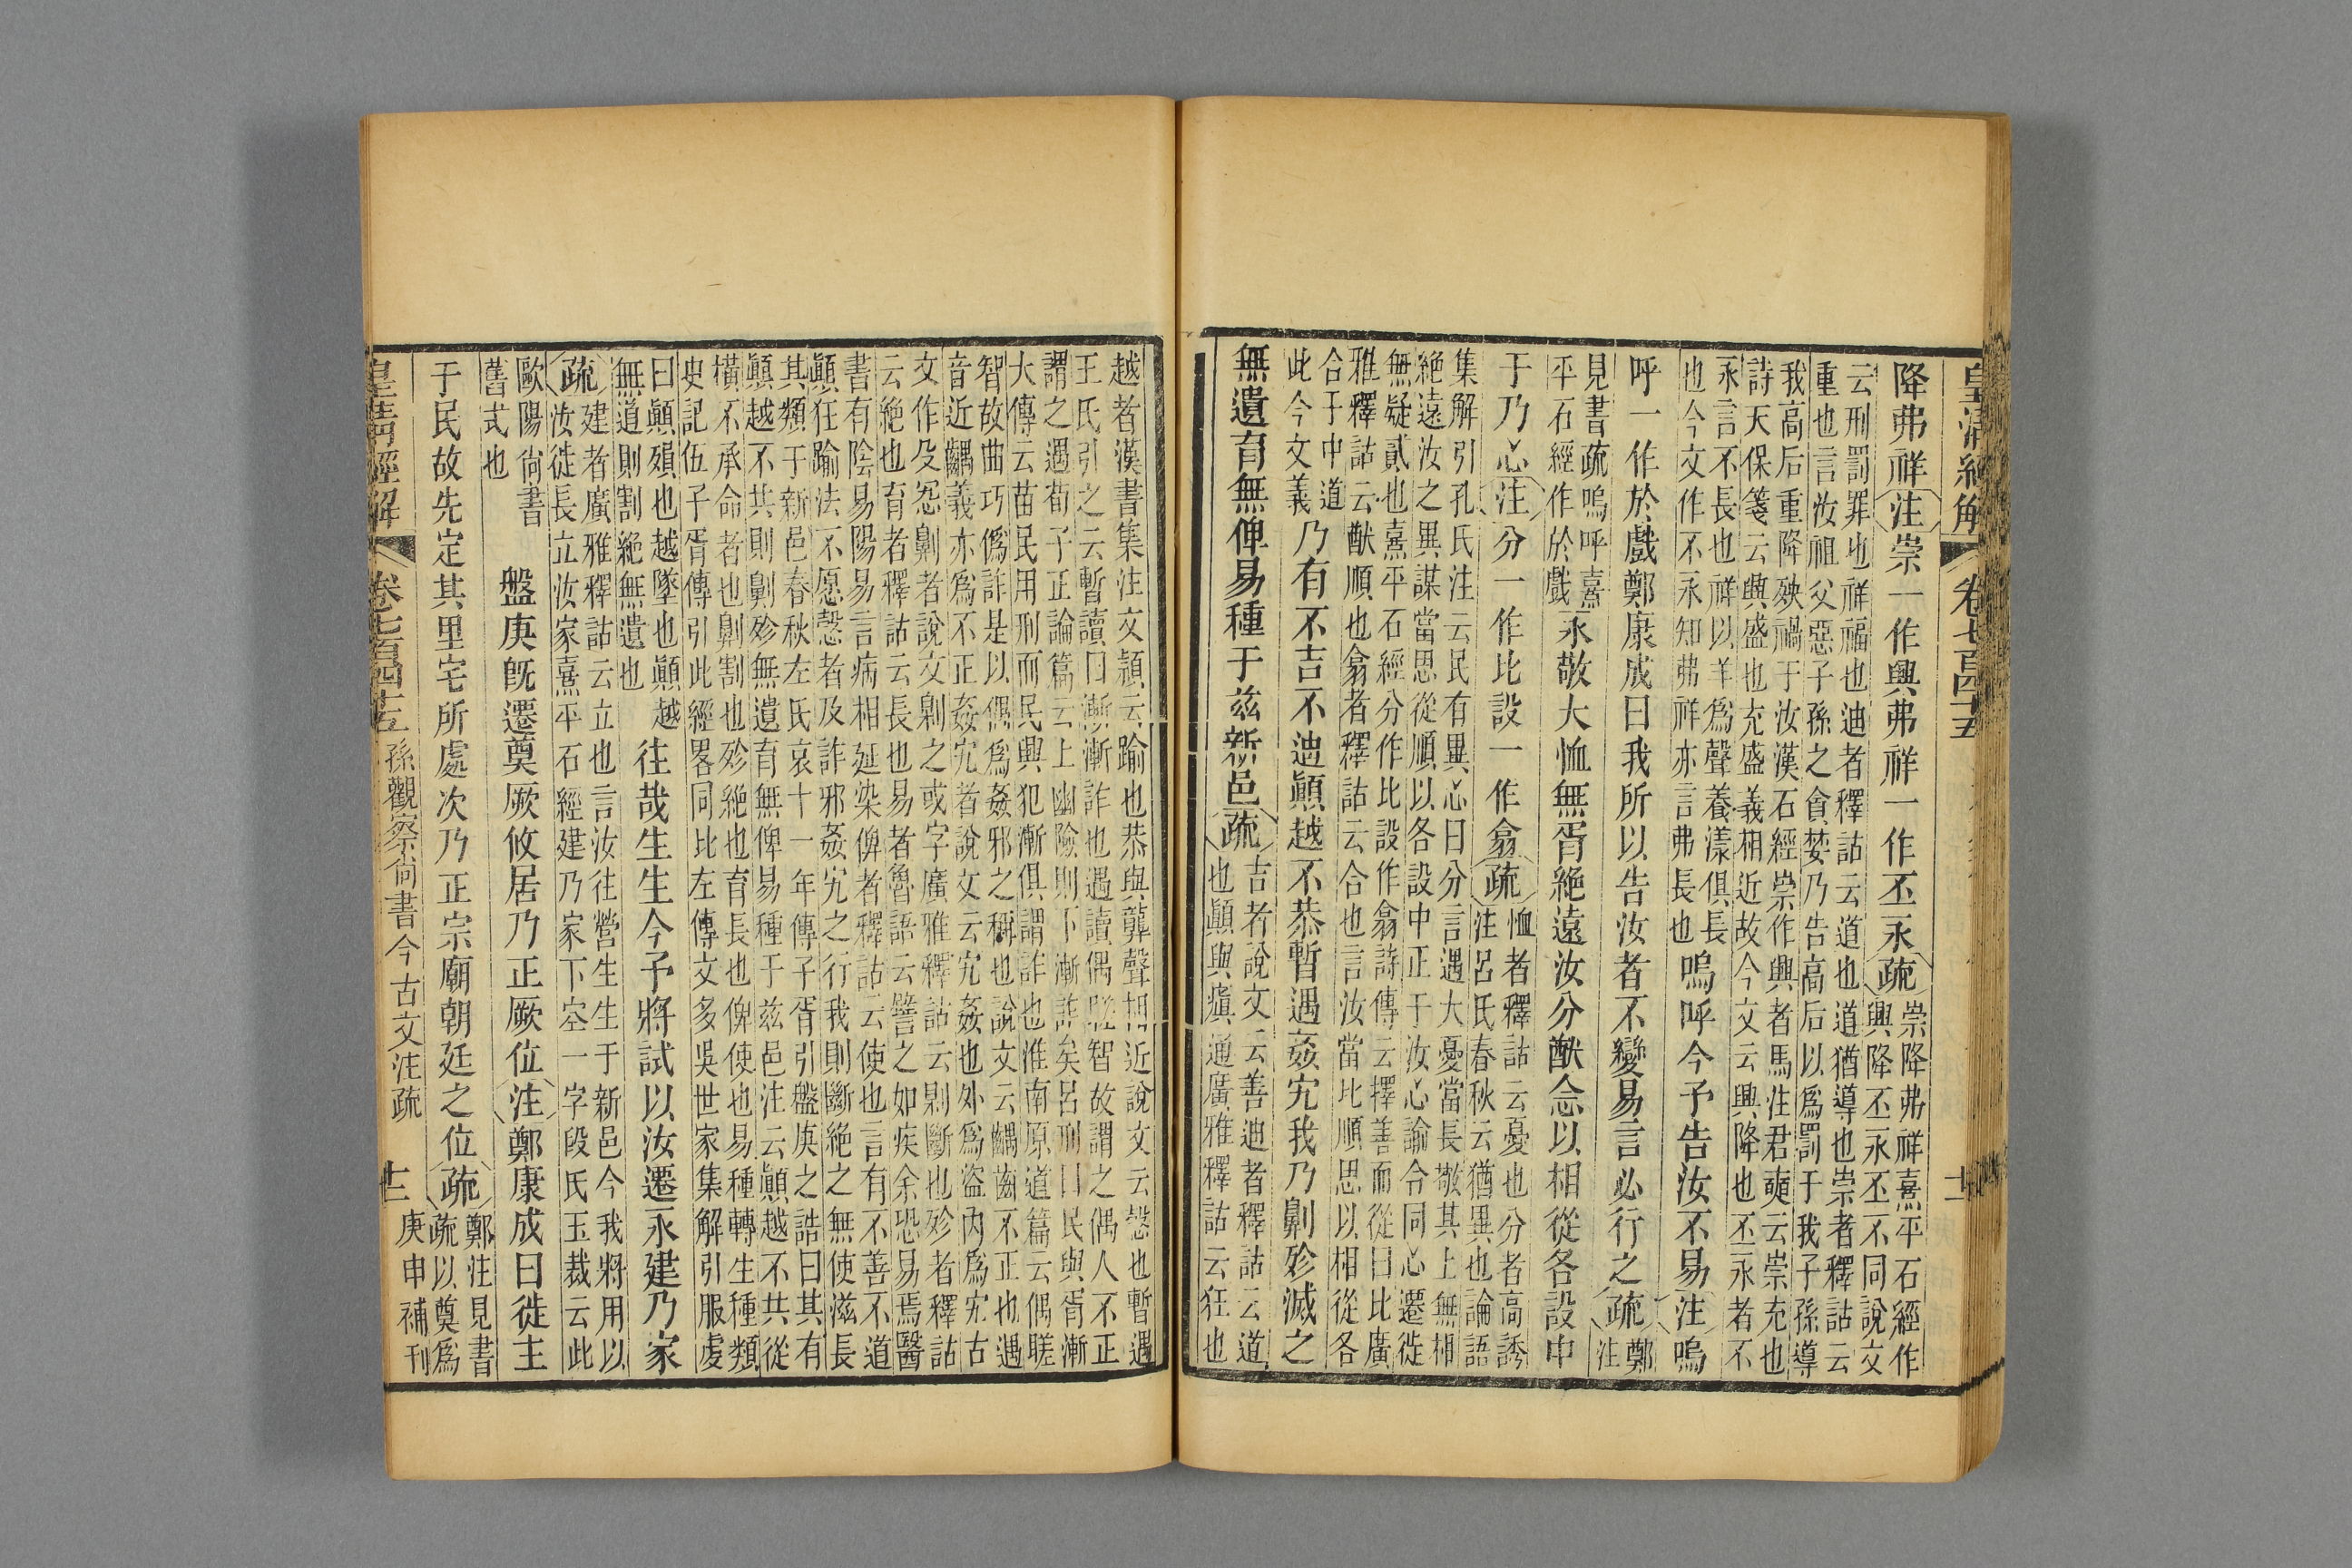 皇清經解 卷七百四十五 十二
降弗祥注崇一作興弗祥一作丕永疏
崇降弗祥熹平石經作
興降丕永丕不同說文
云刑罰罪也祥福也迪者釋詁云道也道猶導也崇者釋詁云
重也言汝祖父惡子孫之貪婪乃告高后以爲罰于我子孫導
我高后重降殃禍于汝漢石經崇作興者馬注君奭云崇充也
詩天保箋云興盛也充盛義相近故今文云興降也丕永者不
永言不長也祥以羊爲聲養漾俱長
也今文作不永知弗祥亦言弗長也
嗚呼今予告汝不易注嗚
呼一作於戲鄭康成曰我所以告汝者不變易言必行之疏
鄭
注
見書疏嗚呼熹
平石經作於戲
永敬大恤無胥絕遠汝分猷念以相從各設中
于乃心注分一作比設一作翕疏
恤者釋詁云憂也分者高誘
注呂氏春秋云猶異也論語
集解引孔氏注云民有異心曰分言遇大憂當長敬其上無相
絕遠汝之異謀當思從順以各設中正于汝心諭合同心遷徙
無疑貳也熹平石經分作比設作翕詩傳云擇善而從曰比廣
雅釋詁云猷順也翕者釋詁云合也言汝當比順思以相從各
合于中道
此今文義
乃有不吉不迪顚越不恭暫遇姦宄我乃劓殄滅之
無遺育無俾易種于茲新邑疏
吉者說文云善迪者釋詁云道
也顚與瘨通廣雅釋詁云狂也
越者漢書集注文穎云踰也恭與龏聲相近說文云愨也暫遇
王氏引之云暫讀曰漸漸詐也遇讀偶智故謂之偶人不正
謂之遇荀子正論篇云上幽險則下漸詐矣呂刑曰民與胥漸
大傳云苗民用刑而民興犯漸俱謂詐也淮南原道篇云偶
智故曲巧僞詐是以偶爲姦邪之稱也說文云齵齒不正也遇
音近齵義亦爲不正姦宄者說文云宄姦也外爲盜內爲宄古
文作殳怨劓者說文劓之或字廣雅釋詁云劓斷也殄者釋詁
云絕也育者釋詁云長也易者魯語云譬之如疾余恐易焉醫
書有陰易陽易言病相延染俾者釋詁云使也言有不善不道
顚狂踰法不愿愨者及詐邪姦宄之行我則斷絕之無使滋長
其類于新邑春秋左氏哀十一年傳子胥引盤庚之誥曰其有
顚越不共則劓殄無遺育無俾易種于茲邑注云顚越不共從
橫不承命者也劓割也殄絕也育長也俾使也易種轉生種類
史記伍子胥傳引此經畧同比左傳文多吳世家集解引服虔
曰顚殞也越墜也顚越
無道則割絕無遺也
往哉生生今予將試以汝遷永建乃家
疏
建者廣雅釋詁云立也言汝往營生生于新邑今我將用以
汝徙長立汝家熹平石經建乃家下空一字段氏玉裁云此
歐陽尙書
舊式也
盤庚旣遷奠厥攸居乃正厥位注鄭康成曰徙主
于民故先定其里宅所處次乃正宗廟朝廷之位疏
鄭注見書
疏以奠爲
皇清經解 卷七百四十五 孫觀察尙書今古文注疏 十二 庚申補刊